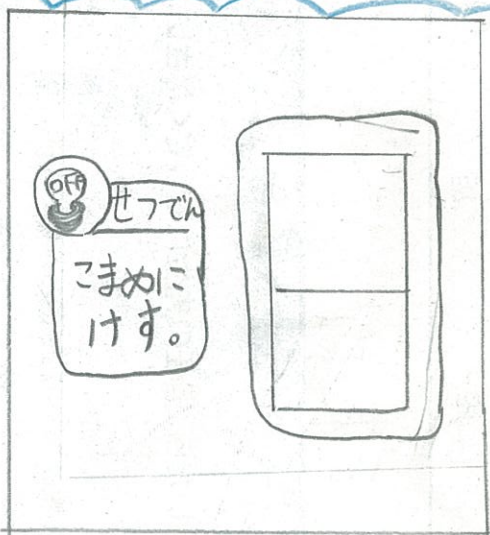 OFF
せつでん
こまめに
けす。